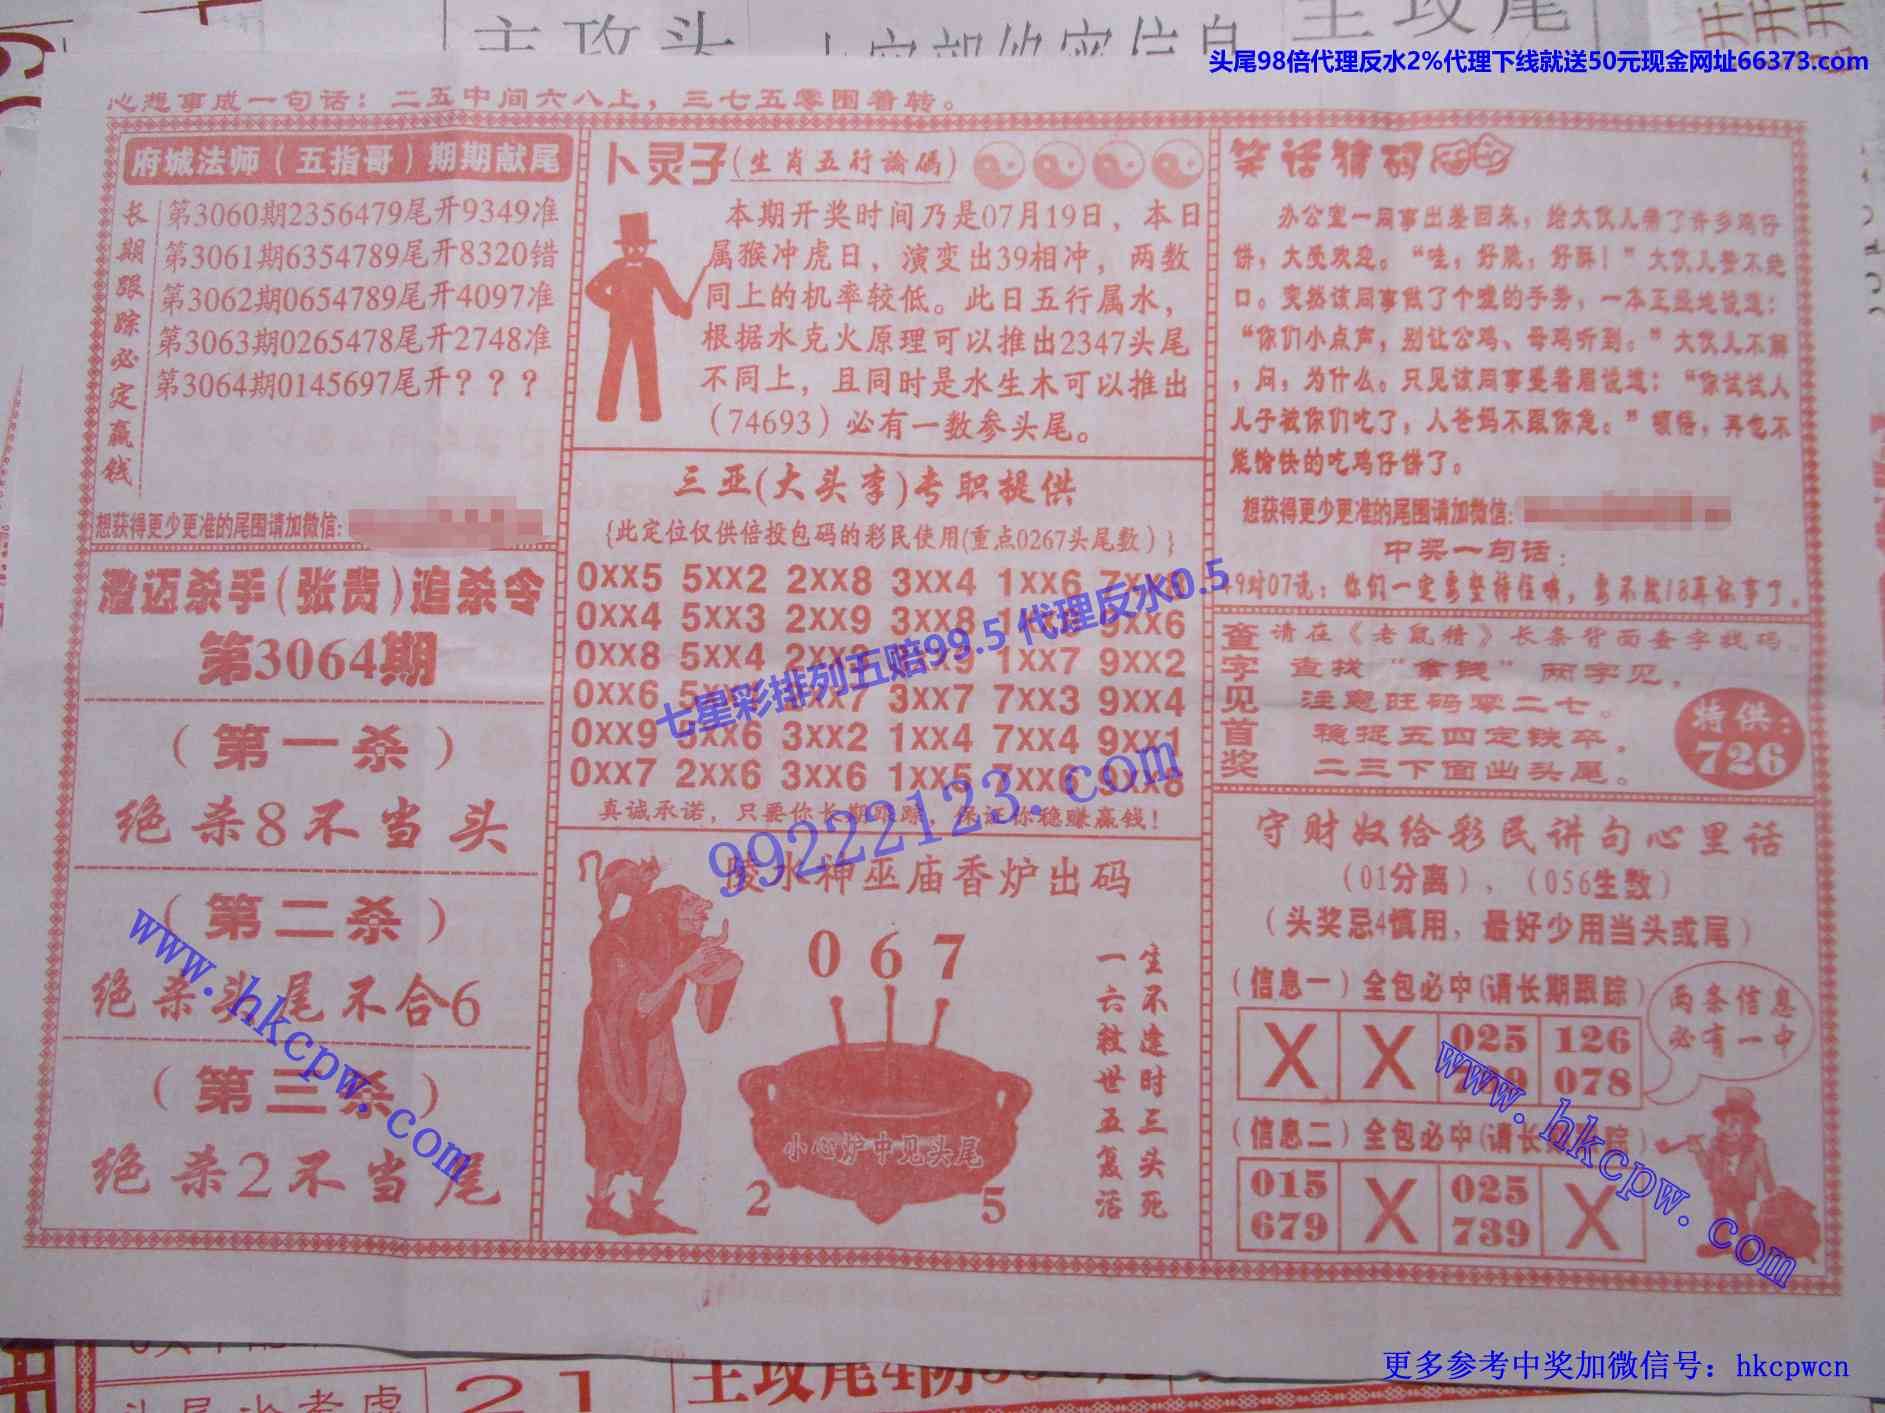 主攻头
主攻尾
头尾98倍代理反水2%代理下线就送50元现金网址66373.com
心想事成一句话：二五中间六八上，三七五零围着转。
府城法师（五指哥）期期献尾
长期跟踪必定赢钱
第3060期2356479尾开9349准
第3061期6354789尾开8320错
第3062期0654789尾开4097准
第3063期0265478尾开2748准
第3064期0145697尾开？？？
想获得更少更准的尾围请加微信:
澄迈杀手（张贵）追杀令
第3064期
（第一杀）
绝杀8不当头
（第二杀）
绝杀头尾不合6
（第三杀）
绝杀2不当尾
卜灵子（生肖五行論碼）
本期开奖时间乃是07月19日，本日
属猴冲虎日，演变出39相冲，两数
同上的机率较低。此日五行属水，
根据水克火原理可以推出2347头尾
不同上，且同时是水生木可以推出
（74693）必有一数参头尾。
三亚(大头李)专职提供
{此定位仅供倍投包码的彩民使用(重点0267头尾数）}
0XX5 5XX2 2XX8 3XX4 1XX6
0XX4 5XX3 2XX9 3XX8 9XX6
0XX8 5XX4 1XX7 9XX2
0XX6 3XX7 7XX3 9XX4
0XX9 5XX6 3XX2 1XX4 7XX4 9XX1
0XX7 2XX6 3XX6 1XX5 7XX6 9XX8
真诚承诺，只要你长期跟踪，保证你稳赚赢钱！
七星彩排列五赔99.5 代理反水0.5
99222123.com
陵水神巫庙香炉出码
067
小心炉中见头尾
2 5
生不逢时三头死
一六救世五复活
笑话猜码
办公室一同事出差回来，给大伙儿带了许多鸡仔
饼，大受欢迎。“哇，好脆，好酥！”大伙儿赞不绝
口。突然该同事做了个嘘的手势，一本正经地说道：
“你们小点声，别让公鸡、母鸡听到。”大伙儿不解
，问，为什么。只见该同事皱着眉说道：“你试试人
儿子被你们吃了，人爸妈不跟你急。”顿悟，再也不
能愉快的吃鸡仔饼了。
想获得更少更准的尾围请加微信:
中奖一句话：
9对07说：你们一定要坚持住哦，要不然18再你事了。
查字见首奖
请在《老鼠精》长条背面查字找码。
查找“拿钱”两字见，
注意旺码零二七。
稳捉五四定铁卒，
二三下面出头尾。
特供：
726
守财奴给彩民讲句心里话
（01分离），（056生数）
（头奖忌4慎用，最好少用当头或尾）
（信息一）全包必中(请长期跟踪）
X X 025 126
078
两条信息
必有一中
（信息二）全包必中(请长期跟踪）
015 X 025 X
679 739
www.hkcpw.com
www.hkcpw.com
21
更多参考中奖加微信号：hkcpwcn